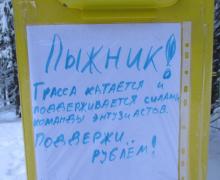 ЛЫЖНИК!
ТРАССА КАТАЕТСЯ И
ПОДДЕРЖИВАЕТСЯ СИЛАМИ
КОМАНДЫ ЭНТУЗИАСТОВ.
ПОДДЕРЖИ..
РУБЛЁМ!